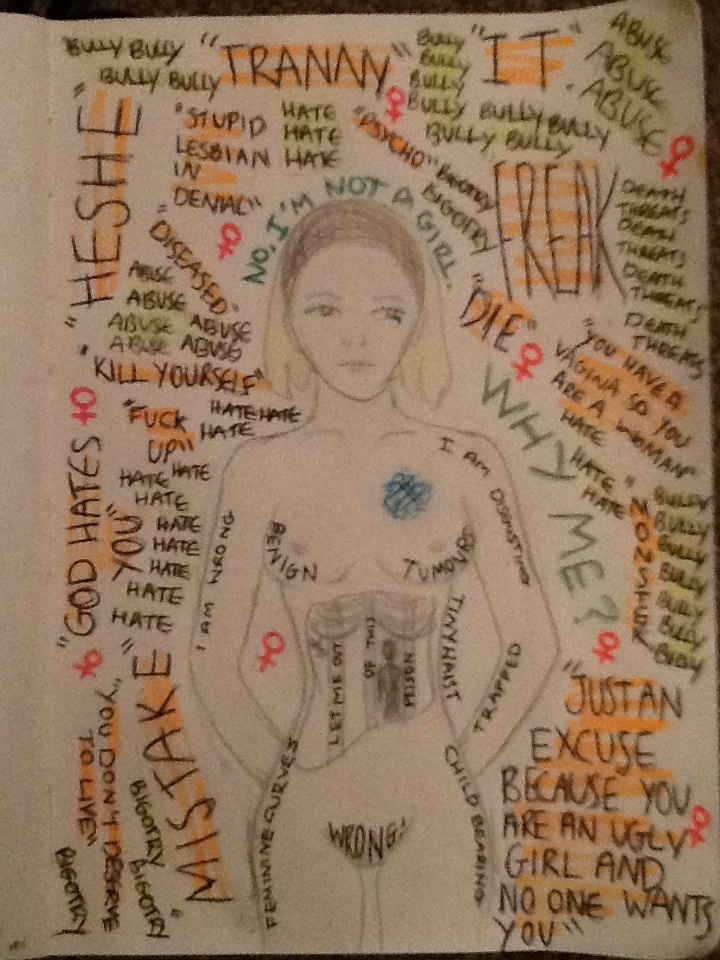 BULLY BULLY
BULLY BULLY
"TRANNY"
BULLY
BULLY
BULLY
BULLY BULLY BULLY
BULLY BULLY
"IT".
ABUSE
ABUSE
ABUSE
"HESHE"
"STUPID
LESBIAN
IN
DENIAL"
HATE
HATE
HATE
"PSYCHO"
BIGOTRY
BIGOTRY
FREAK
DEATH
THREATS
DEATH
THREATS
DEATH
THREATS
DEATH
THREATS
NO, I'M NOT A GIRL.
"DISEASED"
ABUSE
ABUSE
ABUSE ABUSE
ABUSE ABUSE
"KILL YOURSELF"
"DIE"
"YOU HAVE A
VAGINA SO YOU
ARE A WOMAN"
HATE
HATE
HATE
"FUCK
UP"
HATE HATE
HATE
HATE
HATE
HATE
HATE
HATE
HATE
HATE
HATE
"GOD HATES
YOU"
WHY ME?
"MONSTER"
BULLY
BULLY
BULLY
BULLY
BULLY
BULLY
BULLY
I AM WRONG
I AM DISGUSTING
BENIGN
TUMOURS
LET ME OUT
OF THIS
PRISON
TRAPPED
FEMININE CURVES
CHILD BEARING
WRONG!
"MISTAKE"
"YOU DON'T DESERVE
TO LIVE"
BIGOTRY
BIGOTRY
BIGOTRY
"JUST AN
EXCUSE
BECAUSE YOU
ARE AN UGLY
GIRL AND
NO ONE WANTS
YOU"